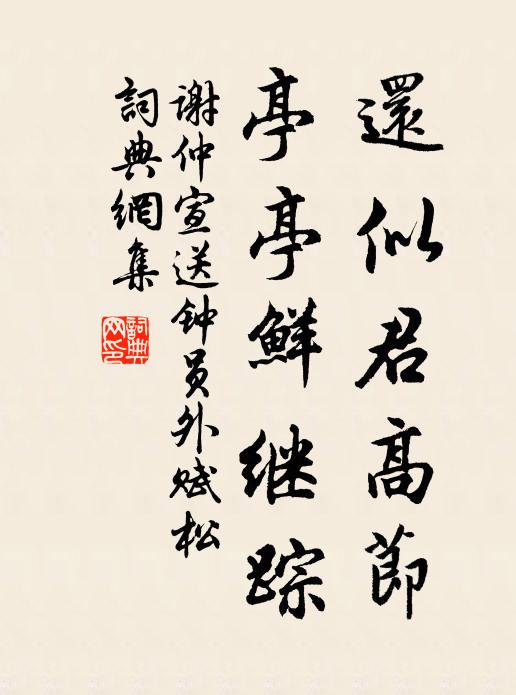 還似君高節
亭亭鮮继踪
谢仲宣送钟员外赋松
詞典網集
詞典網印